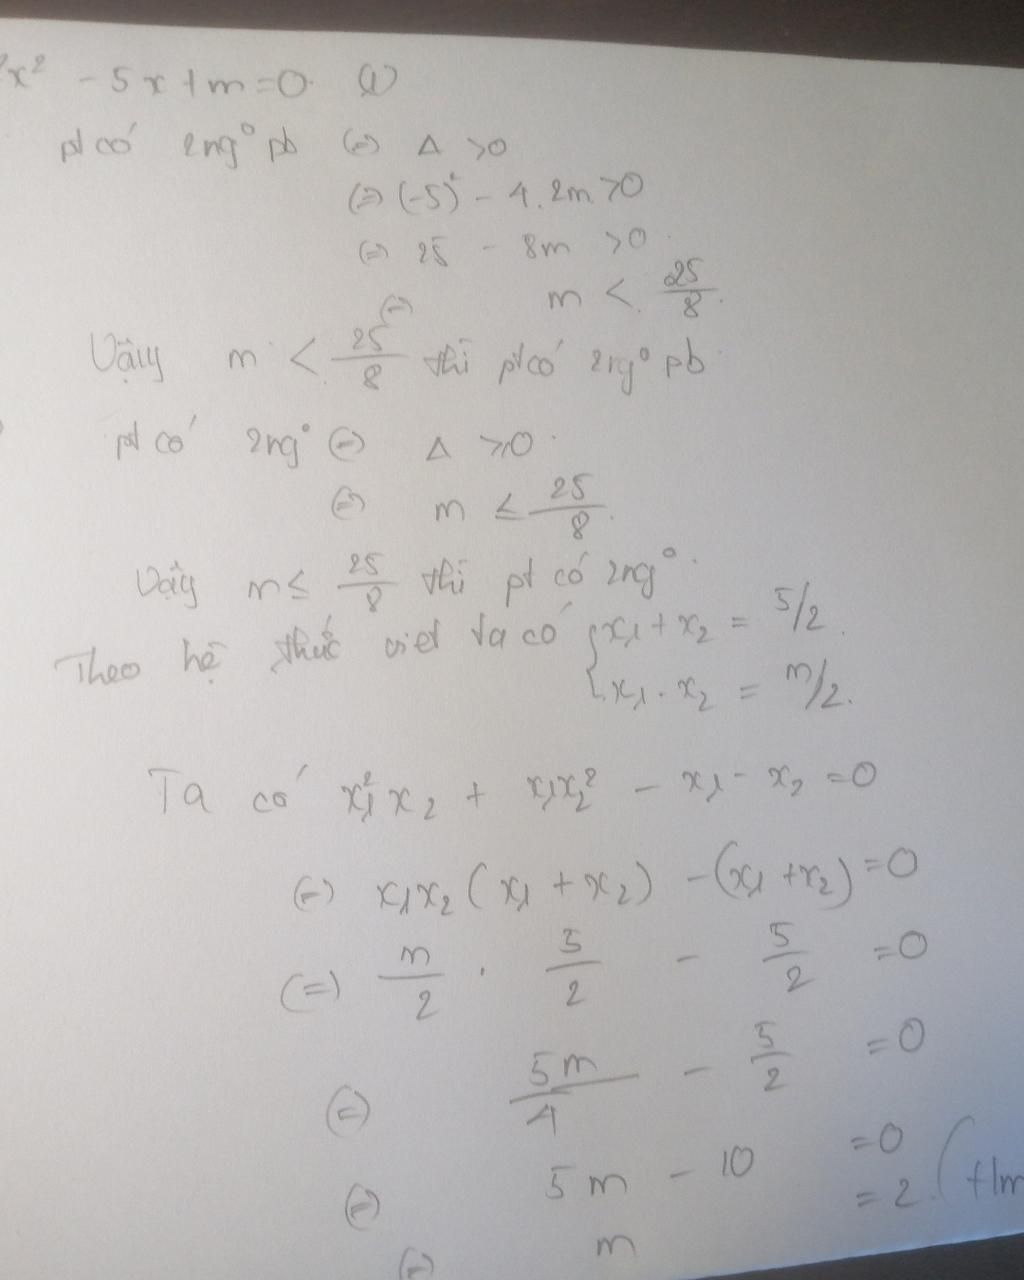 2x² - 5x + m = 0 (1)
pt có 2ng° pb (=) Δ > 0
(=) (-5)² - 4.2m > 0
(=) 25 - 8m > 0
(=) m < 25/8
Vậy m < 25/8 thì pt có 2ng° pb
pt có 2ng° (=) Δ ≥ 0
(=) m ≤ 25/8
Vậy m ≤ 25/8 thì pt có 2ng°
Theo hệ thức viet ta có { x₁ + x₂ = 5/2
x₁ . x₂ = m/2.
Ta có x₁²x₂ + x₁x₂² - x₁ - x₂ = 0
(=) x₁x₂(x₁ + x₂) - (x₁ + x₂) = 0
(=) m/2 . 5/2 - 5/2 = 0
(=) 5m/4 - 5/2 = 0
(=) 5m - 10 = 0
(=) m = 2 (t/m